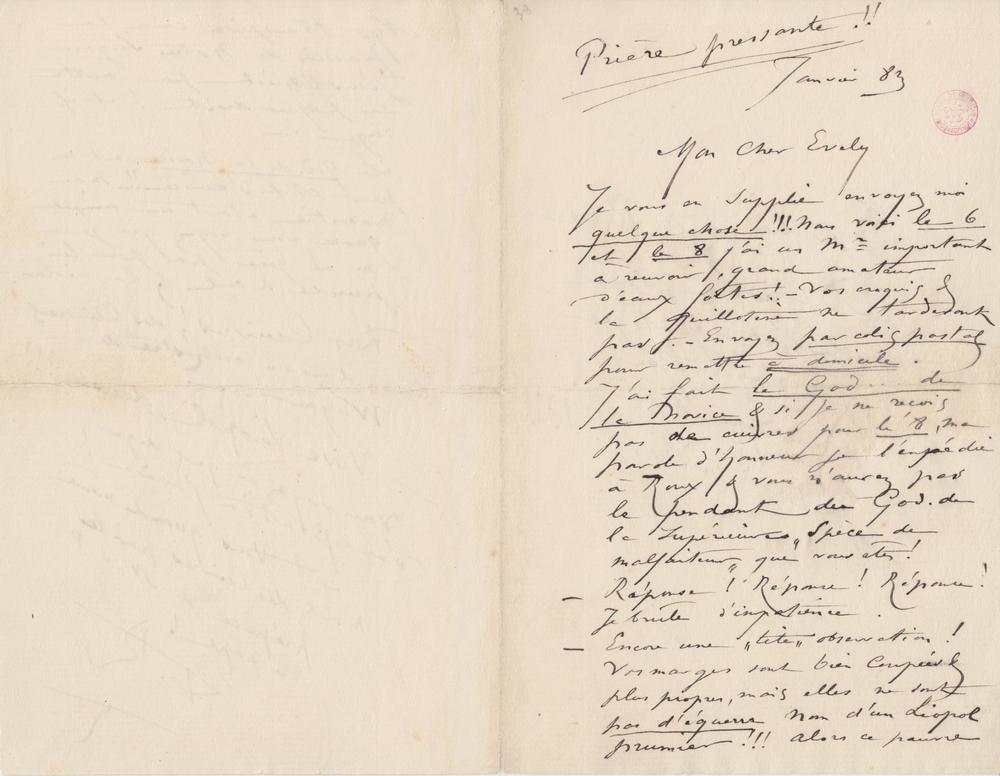 Prière pressante !!
Janvier 83
Mon Cher Evely
Je vous en supplie envoyez moi
quelque chose !!! Nous voici le 6
et le 8 j'ai un Mr important
à recevoir, grand amateur
d'eaux fortes ! – Vos croquis &
la Guillotine ne tarderont
pas ? – Envoyez par colis postal
pour remettre à domicile.
J'ai fait le God... de
la Novice & si je ne reçois
pas de cuivres pour le 8, ma
parole d'honneur je l'expédie
à Roux & vous n'aurez pas
le pendant du God. de
la Supérieure, "Spèce de
malfaiteur" que vous êtes !
– Réponse ! Réponse ! Réponse !
Je brule d'impatience.
– Encore une "tite" observation !
Vos marges sont bien coupées &
plus propres, mais elles ne sont
pas d'équerre nom d'un Liopol
prumier !!! Alors ce pauvre